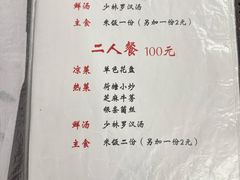 鲜汤 少林罗汉汤
主食 米饭一份（另加一份2元）
二人餐 100元
凉菜 单色花盘
热菜 荷塘小炒
芝麻牛蒡
银杏菌丝
鲜汤 少林罗汉汤
主食 米饭二份（另加一份2元）